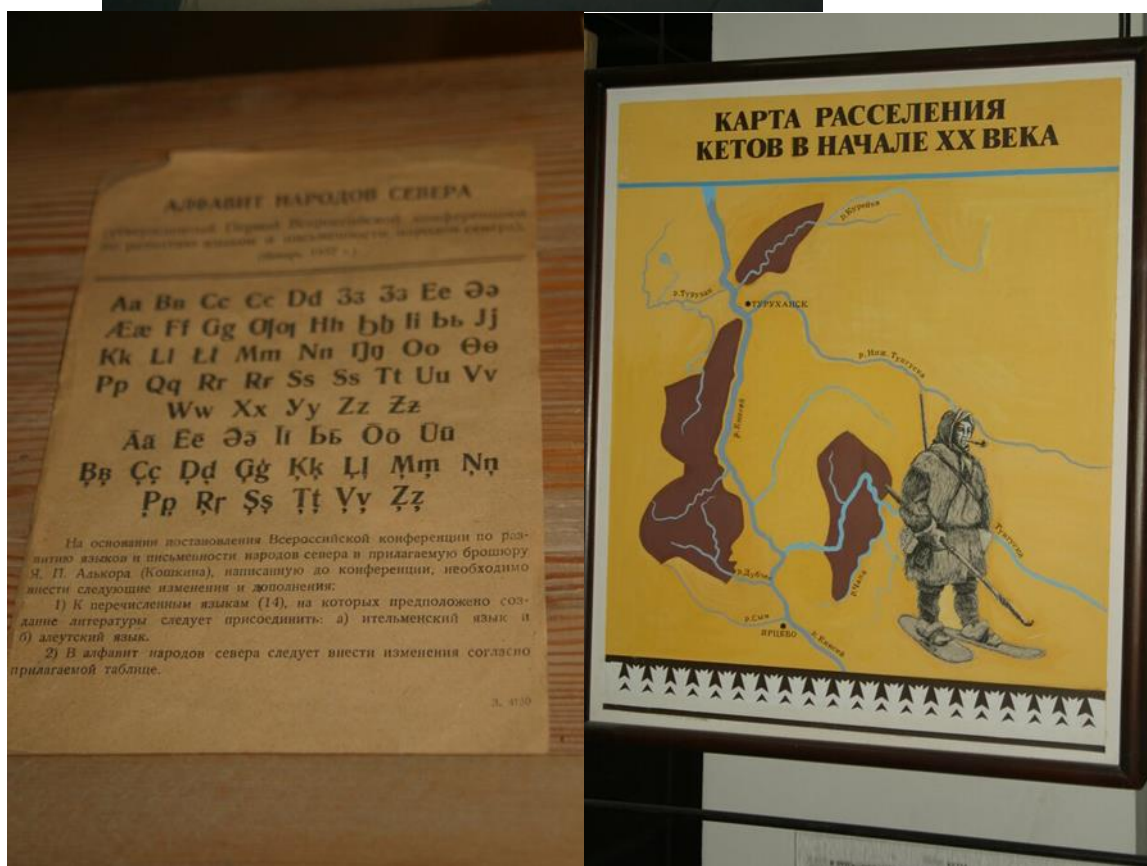 АЛФАВИТ НАРОДОВ СЕВЕРА
Первой Всероссийской конференцией
по развитию языков и письменности народов севера).
(Январь 1932 г.)
Aa Bʙ Cc Єє Dd Ʒʒ Ʒʒ Ee Əə
Ææ Ff Gg Ƣƣ Hh Ꜧꜧ Ii Ьь Jj
Kk Ll Łł Mm Nn Ŋŋ Oo Ɵɵ
Pp Qq Rr Rr Ss Ss Tt Uu Vv
Ww Xx Уy Zz Ƶƶ
Āā Ēē Ə̄ə̄ Īī Ь̄ь̄ Ōō Ūū
B̨ʙ̨ Çç D̨d̨ Ģģ Ķķ Ļļ M̨m̨ Ņņ
P̨p̨ Ŗŗ Şş Ţţ V̨v̨ Z̧z̧
На основании постановления Всероссийской конференции по раз-
витию языков и письменности народов севера в прилагаемую брошюру
Я. П. Алькора (Кошкина), написанную до конференции, необходимо
внести следующие изменения и дополнения:
1) К перечисленным языкам (14), на которых предположено соз-
дание литературы следует присоединить: а) ительменский язык и
б) алеутский язык.
2) В алфавит народов севера следует внести изменения согласно
прилагаемой таблице.
КАРТА РАССЕЛЕНИЯ
КЕТОВ В НАЧАЛЕ XX ВЕКА
р. Курейка
р. Турухан
ТУРУХАНСК
р. Ниж. Тунгуска
р. Енисей
Тунгуска
р. Дубчес
р. Сым
ЯРЦЕВО
р. Енисей